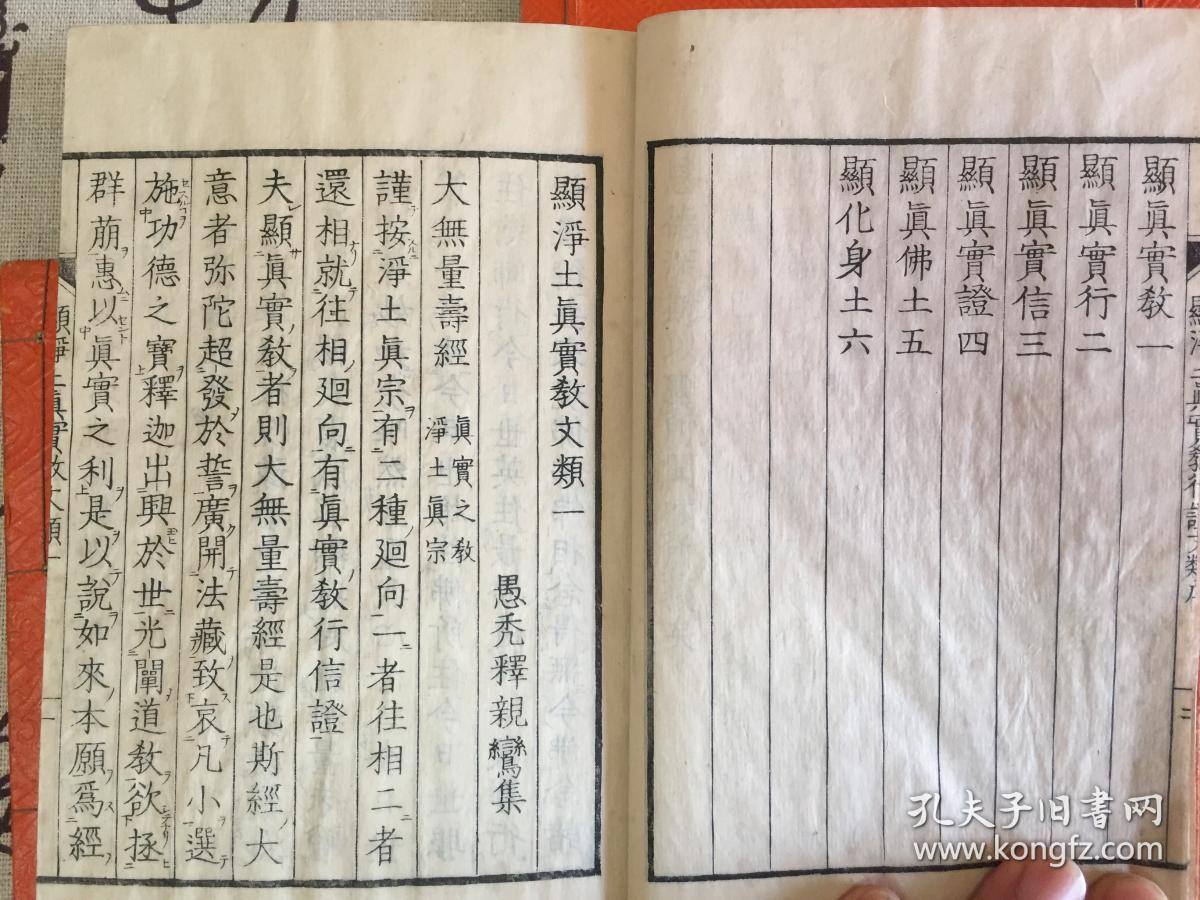 顯眞實敎一
顯眞實行二
顯眞實信三
顯眞實證四
顯眞佛土五
顯化身土六
顯淨土眞實敎文類一
愚禿釋親鸞集
大無量壽經
眞實之敎
淨土眞宗
謹按淨土眞宗有二種廻向一者往相二者
還相就往相廻向有眞實敎行信證
夫顯眞實敎者則大無量壽經是也斯經大
意者弥陀超發於誓廣開法藏致哀凡小選
施功德之寶釋迦出興於世光闡道敎欲拯
群萠惠以眞實之利是以說如來本願爲經
顯淨土眞實敎文類一
孔夫子旧书网
www.kongfz.com